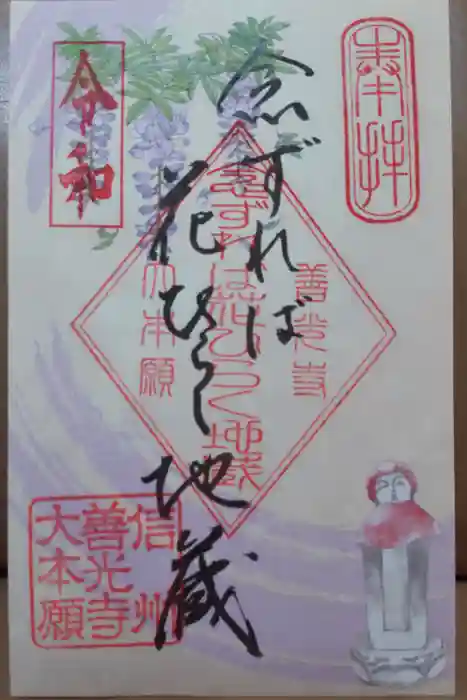 奉拝
念ずれば
花ひらく
地蔵
令和
善光寺
念ずれば花ひらく地蔵
大本願
信州
善光寺
大本願